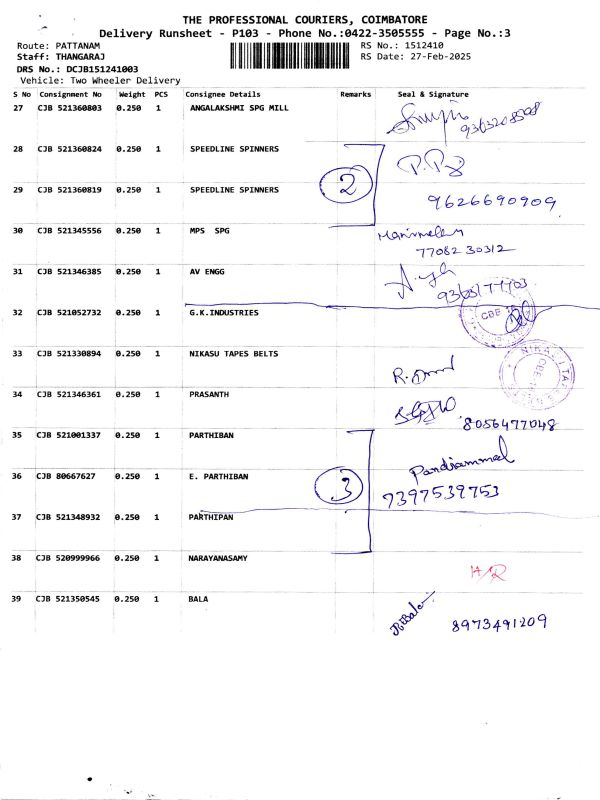 THE PROFESSIONAL COURIERS, COIMBATORE
Delivery Runsheet - P103 - Phone No.:0422-3505555 - Page No.:3
Route: PATTANAM RS No.: 1512410
Staff: THANGARAJ RS Date: 27-Feb-2025
DRS No.: DCJB151241003
Vehicle: Two Wheeler Delivery
S No Consignment No Weight PCS Consignee Details Remarks Seal & Signature
27 CJB 521360803 0.250 1 ANGALAKSHMI SPG MILL
28 CJB 521360824 0.250 1 SPEEDLINE SPINNERS
2
29 CJB 521360819 0.250 1 SPEEDLINE SPINNERS 9626690909
30 CJB 521345556 0.250 1 MPS SPG
77082 30312
31 CJB 521346385 0.250 1 AV ENGG
32 CJB 521052732 0.250 1 G.K.INDUSTRIES CBE
33 CJB 521330894 0.250 1 NIKASU TAPES BELTS
34 CJB 521346361 0.250 1 PRASANTH
8056477048
35 CJB 521001337 0.250 1 PARTHIBAN
Pandiammal
36 CJB 80667627 0.250 1 E. PARTHIBAN 3 7397539753
37 CJB 521348932 0.250 1 PARTHIPAN
38 CJB 520999966 0.250 1 NARAYANASAMY
39 CJB 521350545 0.250 1 BALA
8973491209